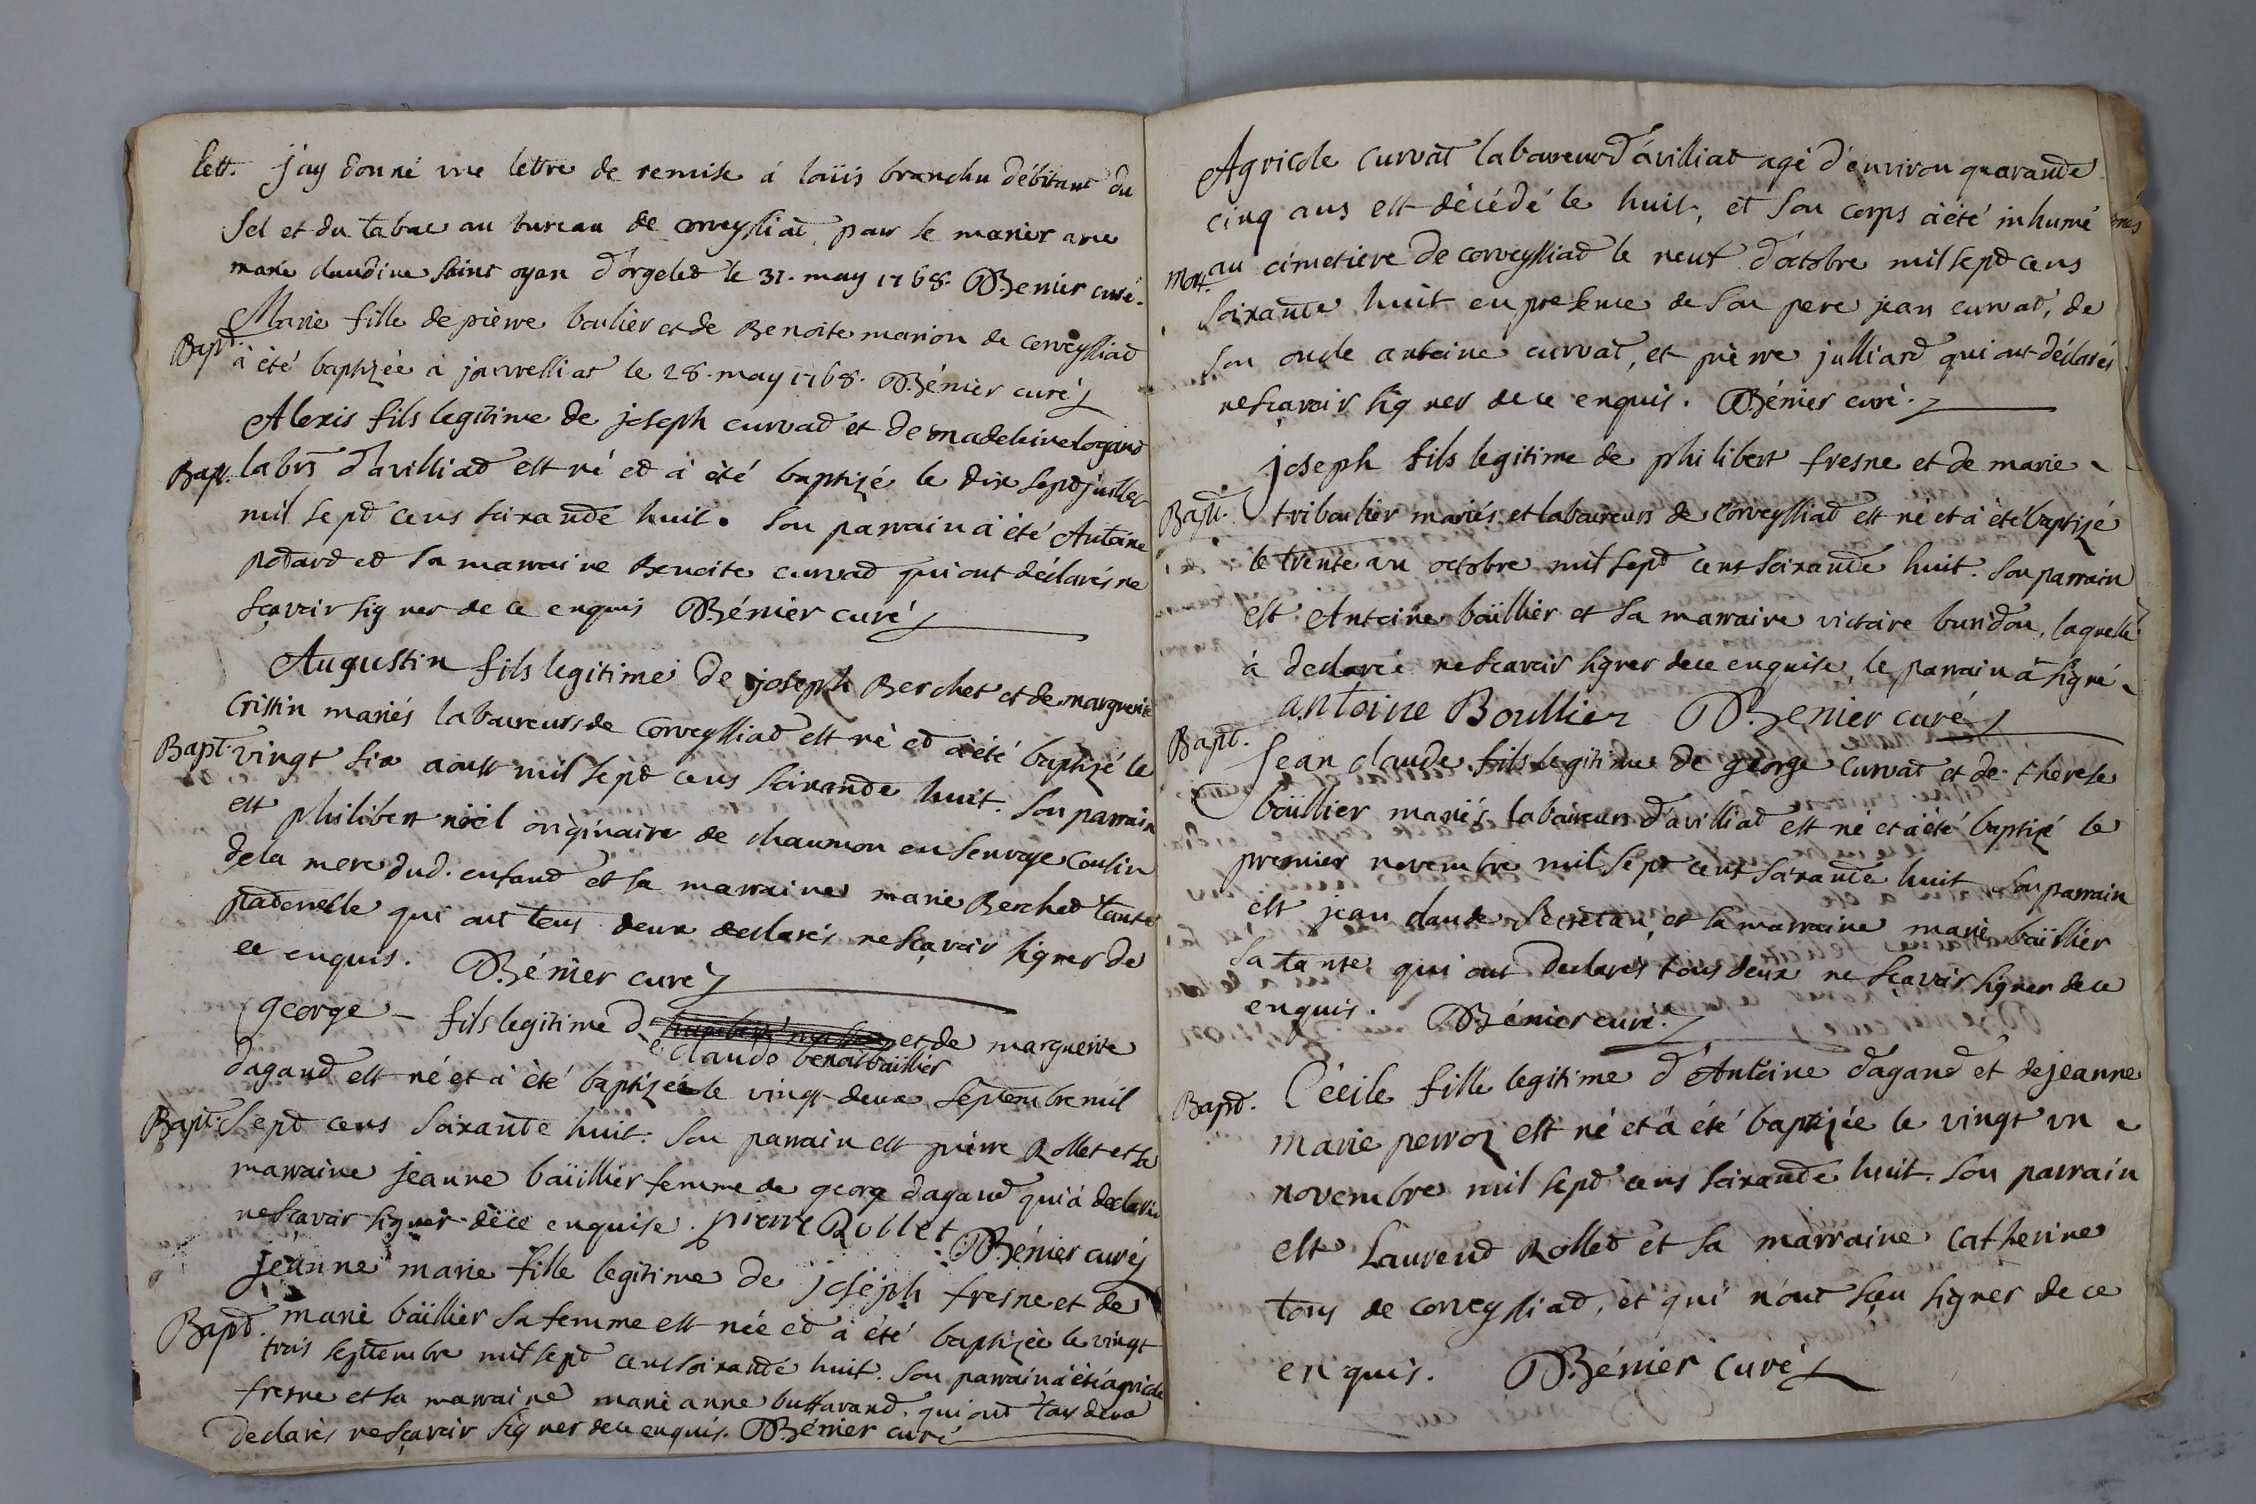 lett. j'ay donné une lettre de remise á loüis branchu débitant du
sel et du tabac au bureau de corveyssiat, pour se marier avec
marie claudine saint oyan d'orgelet le 31. may 1768. Bénier curé.
Marie fille de pièrre boulier et de Benoite marion de corveyssiat
Bapt. à été baptizée à jouvelliat le 28. may 1768. Bénier curé
Alexis fils legitime de joseph curvat et de madeleine
Bapt. labrs d'avilliat est né et à été baptizé le dix sept juillet
mil sept cens soixante huit. Son parrain à été Antoine
potard et sa marraine Benoite curvat qui ont déclarés ne
sçavoir signer de ce enquis Bénier curé
Augustin fils legitime de joseph Berchet et de marguerite
Cristin mariés laboureurs de corveyssiat est né et à été baptizé le
Bapt. vingt six aoust mil sept cens soixante huit. Son parrain
est philibert nöel originaire de chaumon en cousin
de la mere dud. enfant et sa marraine marie Berchet tante
paternelle qui ont tous deux declarés ne sçavoir signer de
ce enquis. Bénier curé
george – fils legitime d et de marguerite
e claude benoit baïllier
dagand est né et à été baptizée le vingt deux septembre mil
Bapt. sept cens soixante huit. Son parrain est pièrre Rollet et sa
marraine jeanne baïillier femme de george dagand qui à declarée
ne sçavoir signer de ce enquise. pierre Rollet Bénier curé
jeanne marie fille legitime de joseph fresne et de
Bapt. marie baïllier sa femme est née et à été baptizée le vingt
trois septembre mil sept cens soixante huit. Son parrain à été agricole
fresne et sa marraine marie anne buffavand. qui ont tous deux
declarés ne sçavoir signer de ce enquis. Bénier curé
Agricole curvat laboureur d'avilliat agé d'environ quarante
cinq ans est décédé le huit, et son corps à été inhumé
Mort. au cimetiere de corveyssiat le neuf d'octobre mil sept cens
soixante huit en presence de son pere jean curvat, de
son oncle antoine curvat, et pièrre julliard qui ont déclarés
ne sçavoir signer de ce enquis. Bénier curé.
joseph fils legitime de philibert fresne et de marie
Bapt. triboulier mariés et laboureurs de corveyssiat est né et à été baptizé
le trente un octobre mil sept cent soixante huit. Son parrain
est Antoine baïllier et sa marraine victoire buridon, laquelle
à declarée ne sçavoir signer de ce enquise, le parrain à signé
antoine Boullier Bénier curé
Bapt. Jean claude fils legitime de george curvat et de therese
baïllier mariés laboureurs d'avilliat est né et à été baptizé le
premier novembre mil sept cent soixante huit son parrain
est jean claude Secretan, et sa marraine marie baïllier
sa tante qui ont declarés tous deux ne sçavoir signer de ce
enquis. Bénier curé.
Bapt. Cécile fille legitime d'Antoine dagand et de jeanne
marie perroz est né et á été baptizée le vingt un
novembre mil sept cens soixante huit. Son parrain
est Laurend Rollet et sa marraine Catherine
tous de corveyssiat, et qui n'ont sçeu signer de ce
enquis. Bénier curé